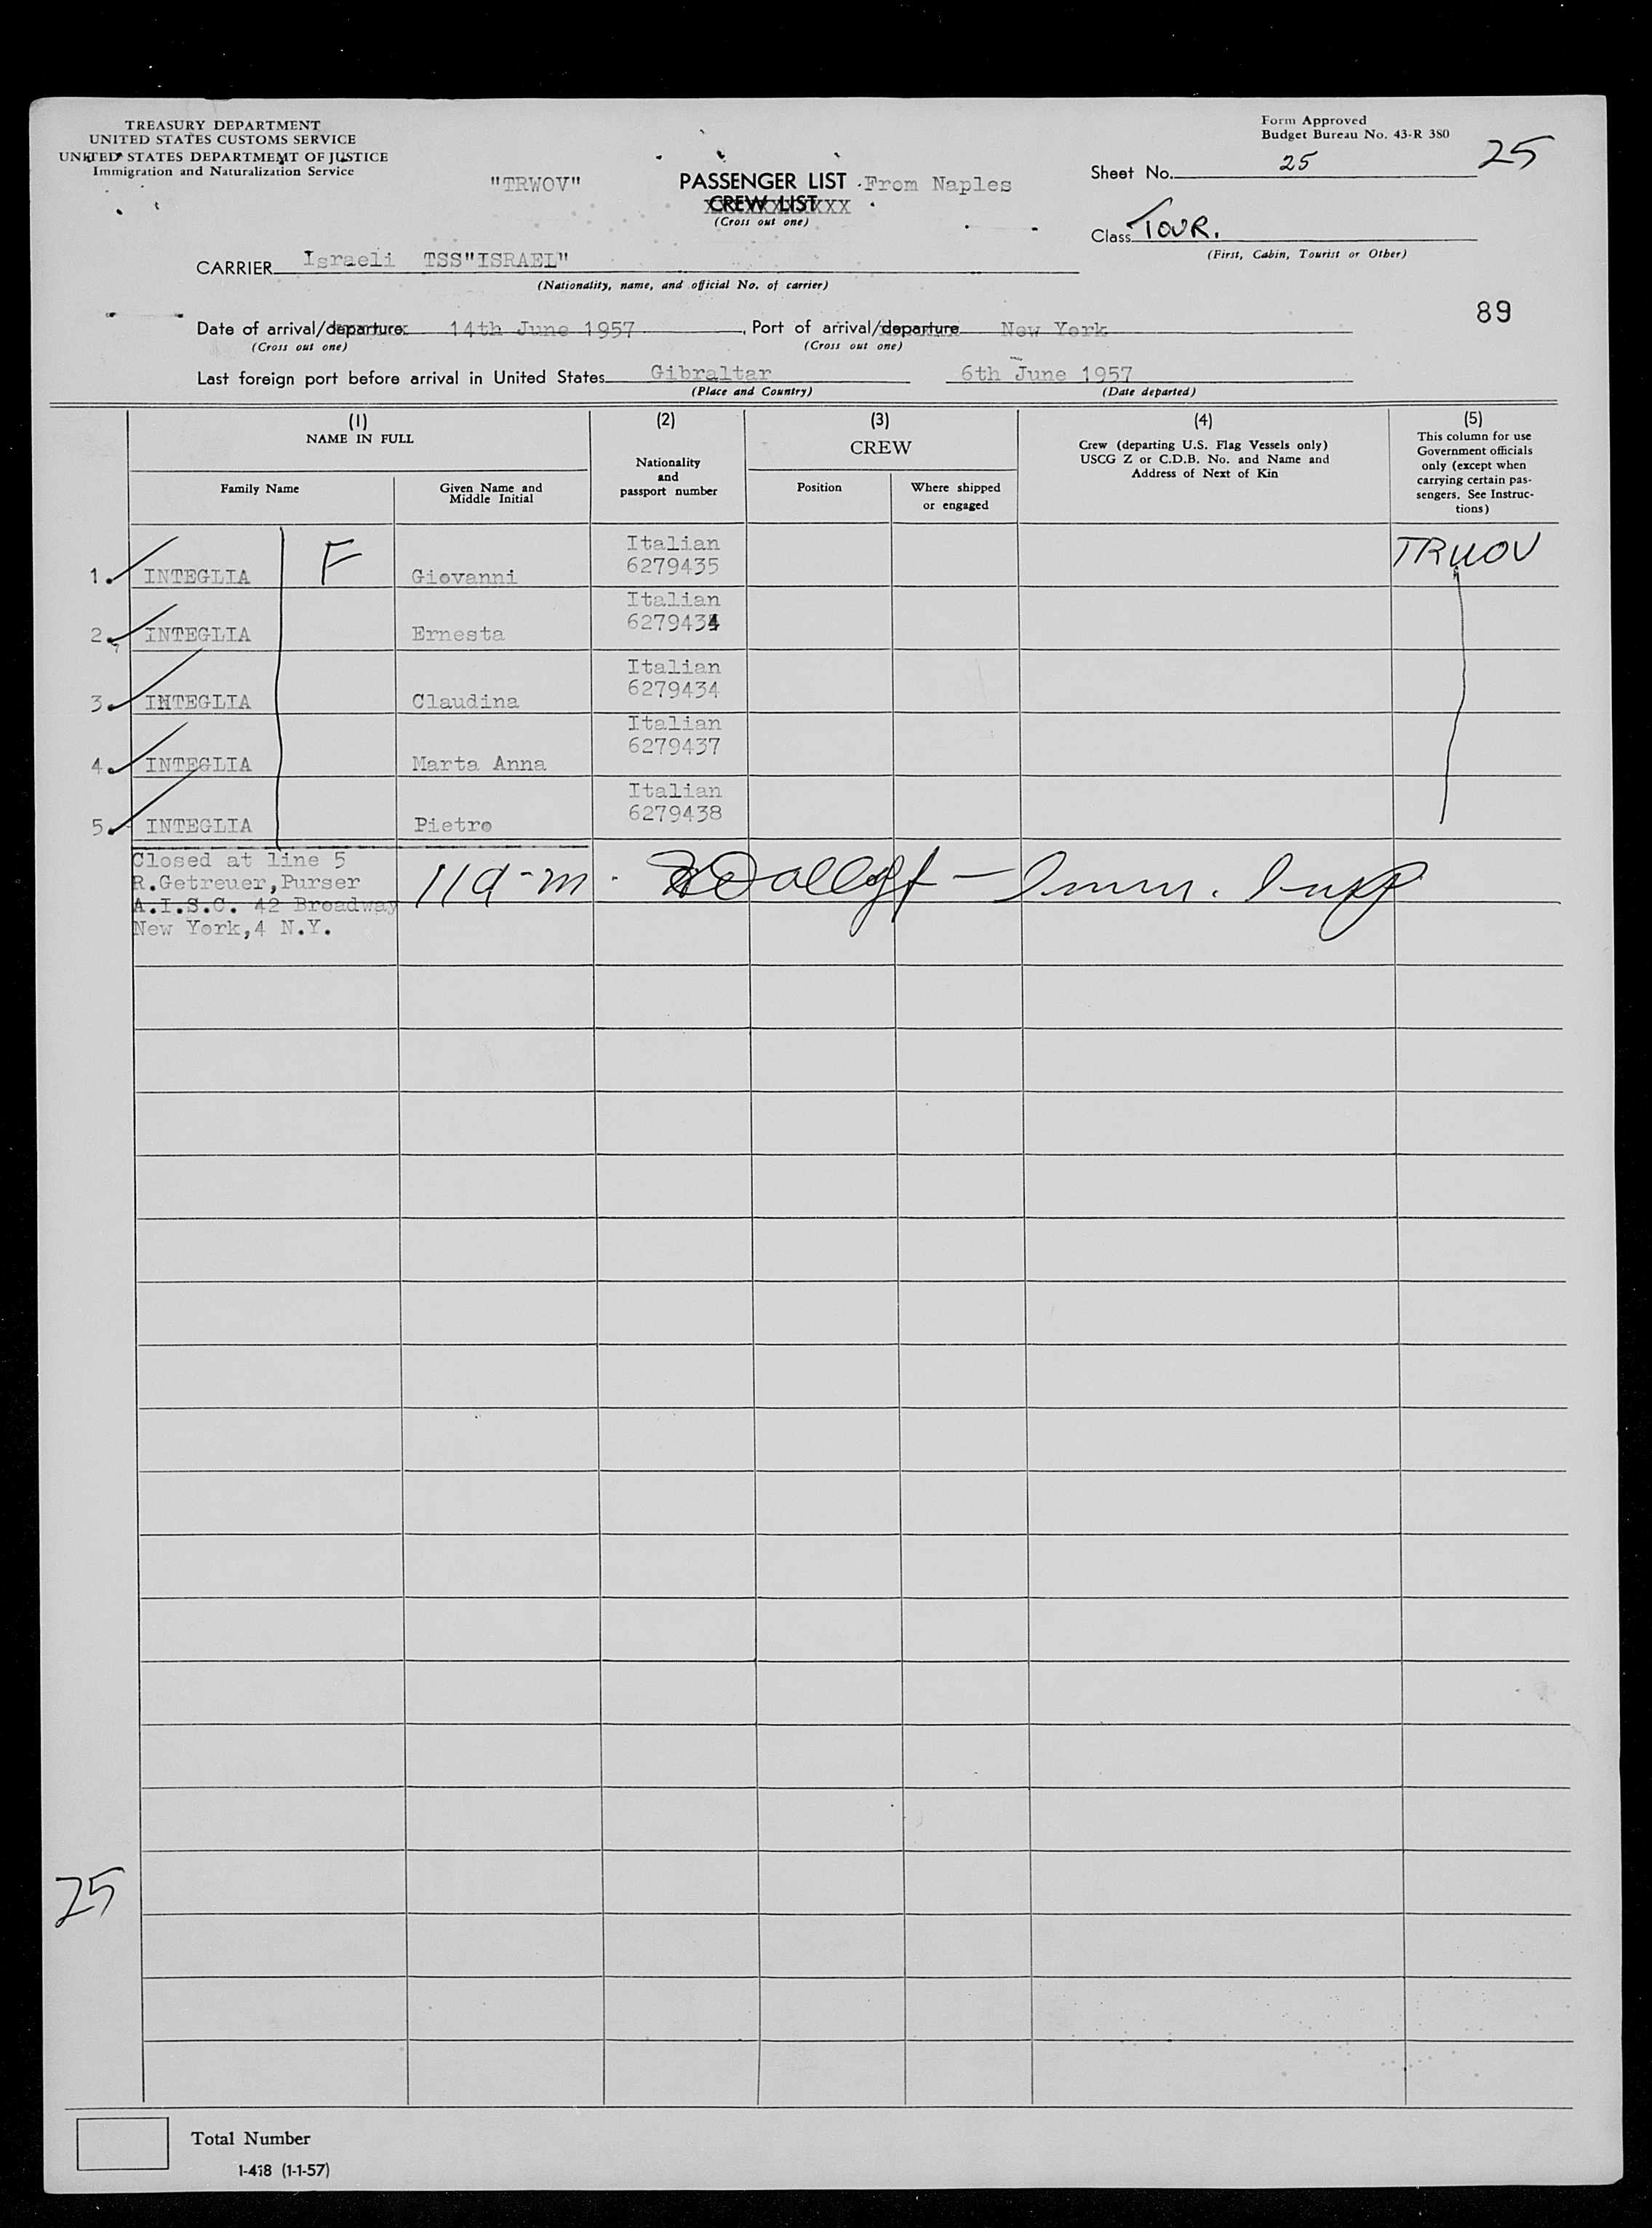 TREASURY DEPARTMENT
UNITED STATES CUSTOMS SERVICE
UNITED STATES DEPARTMENT OF JUSTICE
Immigration and Naturalization Service
Form Approved
Budget Bureau No. 43-R 380
"TRWOV"
PASSENGER LIST From Naples
CREW LIST XXX
(Cross out one)
Sheet No. 25
25
Class TOUR.
(First, Cabin, Tourist or Other)
CARRIER Israeli TSS"ISRAEL"
(Nationality, name, and official No. of carrier)
89
Date of arrival/departure 14th June 1957, Port of arrival/departure New York
(Cross out one) (Cross out one)
Last foreign port before arrival in United States Gibraltar 6th June 1957
(Place and Country) (Date departed)
(1)
NAME IN FULL
Family Name
Given Name and
Middle Initial
(2)
Nationality
and
passport number
(3)
CREW
Position
Where shipped
or engaged
(4)
Crew (departing U.S. Flag Vessels only)
USCG Z or C.D.B. No. and Name and
Address of Next of Kin
(5)
This column for use
Government officials
only (except when
carrying certain pas-
sengers. See Instruc-
tions)
F
TRWOV
Italian
1. INTEGLIA Giovanni 6279435
Italian
2. INTEGLIA Ernesta 6279434
Italian
3. INTEGLIA Claudina 6279434
Italian
4. INTEGLIA Marta Anna 6279437
Italian
5. INTEGLIA Pietro 6279438
Closed at line 5
R.Getreuer,Purser
A.I.S.C. 42 Broadway
New York,4 N.Y.
11a-m. Imm. Insp
25
Total Number
I-418 (1-1-57)